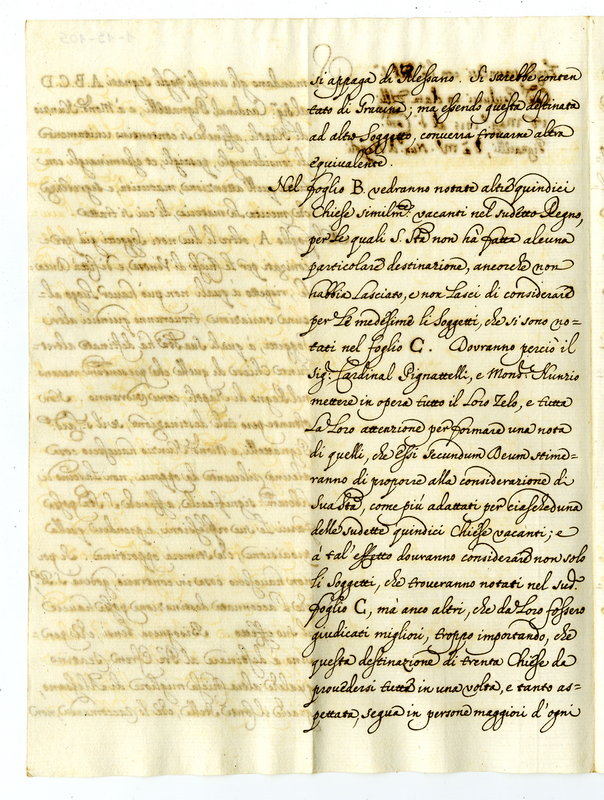 si appaga di Alessano. Si sarebbe conten
tato di Gravina; ma essendo questa destinata
ad altro Soggetto, converrà trovarne altra
equivalente.
Nel foglio B. vedranno notate altre quindici
Chiese similm.te vacanti nel sudetto Regno,
per le quali S. Stà non hà fatta alcuna
particolare destinazione, ancorche non
habbia lasciato, e non lasci di considerare
per le medesime li Soggetti, che si sono no=
tati nel foglio C. Dovranno perciò il
Sig.r Cardinal Pignattelli, e Mons.r Nunzio
mettere in opera tutto il loro zelo, e tutta
la loro attenzione per formare una nota
di quelli, che essi secundum Deum stime=
ranno di proporre alla considerazione di
Sua Stà, come più adattati per ciascheduna
delle sudette quindici Chiese vacanti; e
à tal' effetto dovranno considerare non solo
li Soggetti, che troveranno notati nel sud.o
foglio C, mà anco altri, che da loro fossero
giudicati migliori, troppo importando, che
questa destinazione di trenta Chiese da
provedersi tutte in una volta, e tanto as=
pettata, segua in persone maggiori d'ogni